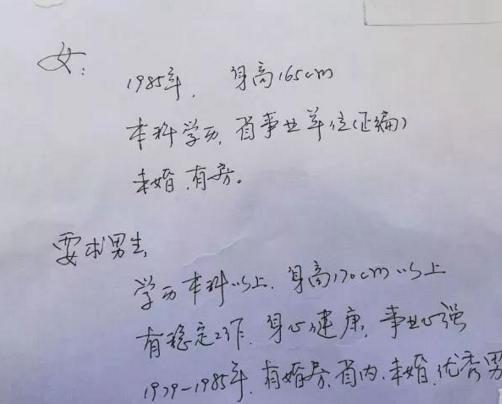 女:
1985年, 身高165cm
本科学历, 省事业单位(正编)
未婚, 有房。
要求男生,
学历本科以上, 身高170cm以上
有稳定工作, 身心健康, 事业心强
1979-1985年, 有婚房, 省内, 未婚, 优秀男